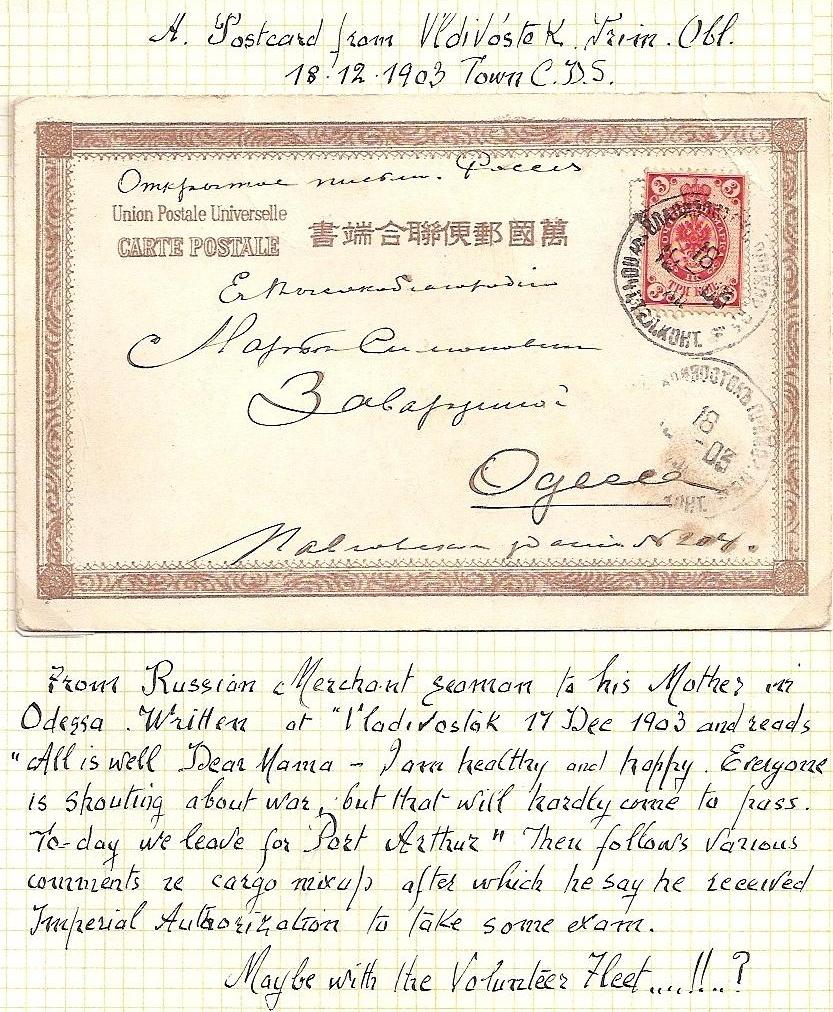 A. Postcard from Vldivóstok. Prim. Obl.
18.12.1903 Town C.D.S.
Открытое письмо. Россия
Union Postale Universelle
CARTE POSTALE
書端合聯便郵國萬
3 3
ТРИ КОП.
18
03
Ея Высокоблагородiю
Марьѣ
Заварзиной
ВЛАДИВОСТОКЪ
18
-03
КОНТ.
Одесса
№ 204.
From Russian Merchant seaman to his Mother in
Odessa. Written at "Vladivostok 17 Dec 1903 and reads
"All is well Dear Mama – I am healthy and happy. Everyone
is shouting about war, but that will hardly come to pass.
To-day we leave for Port Arthur" Then follows various
comments re cargo mixup after which he say he received
Imperial Authorization to take some exam.
Maybe with the Volunteer Fleet....!!..?